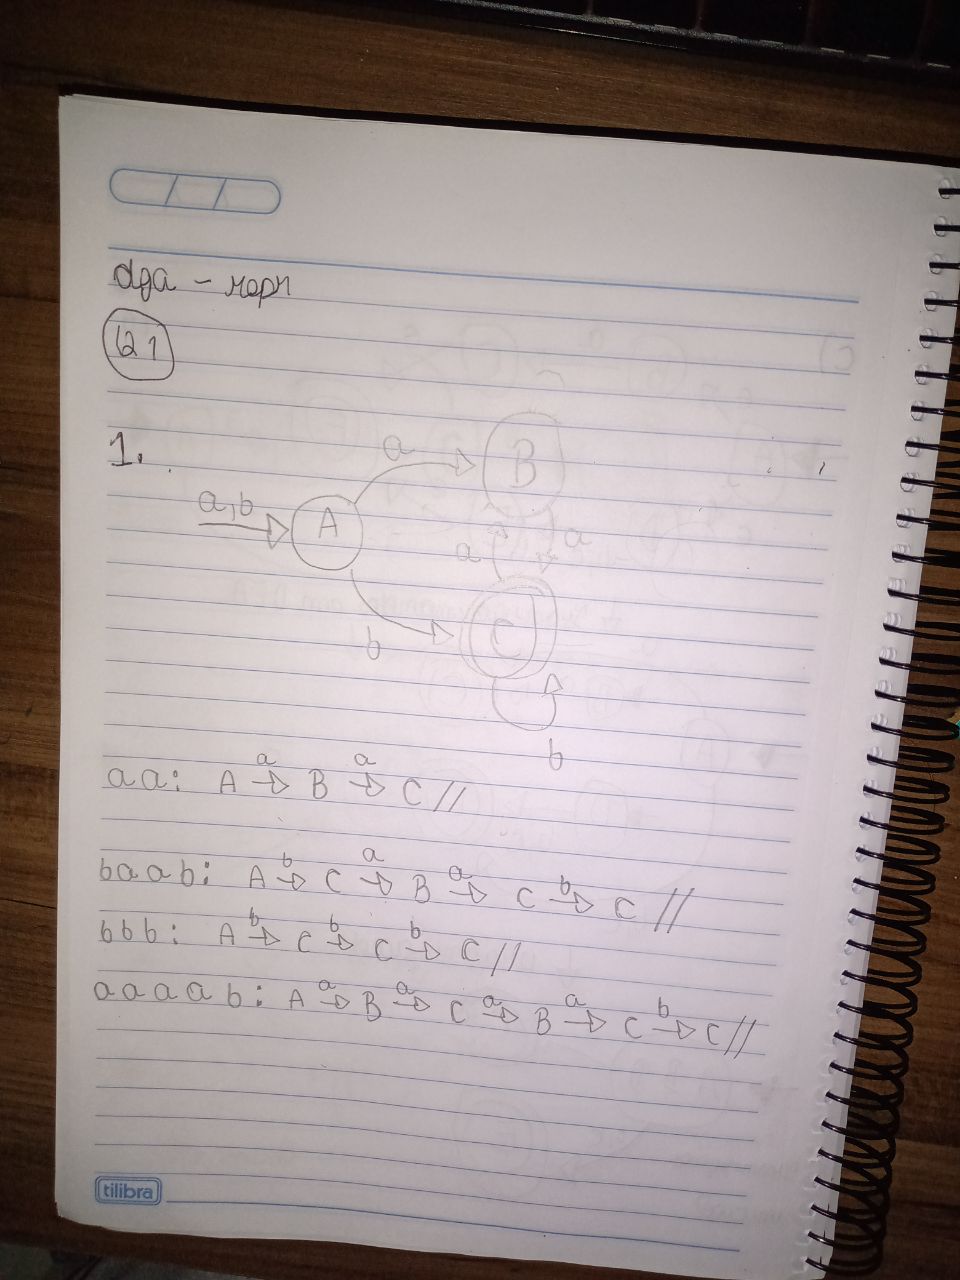 1.
a
B
a,b
A
a
a
C
b
b
aa: A a→ B a→ C //
baab: A b→ C a→ B a→ C b→ C //
bbb: A b→ C b→ C b→ C //
aaaab: A a→ B a→ C a→ B a→ C b→ C //
tilibra